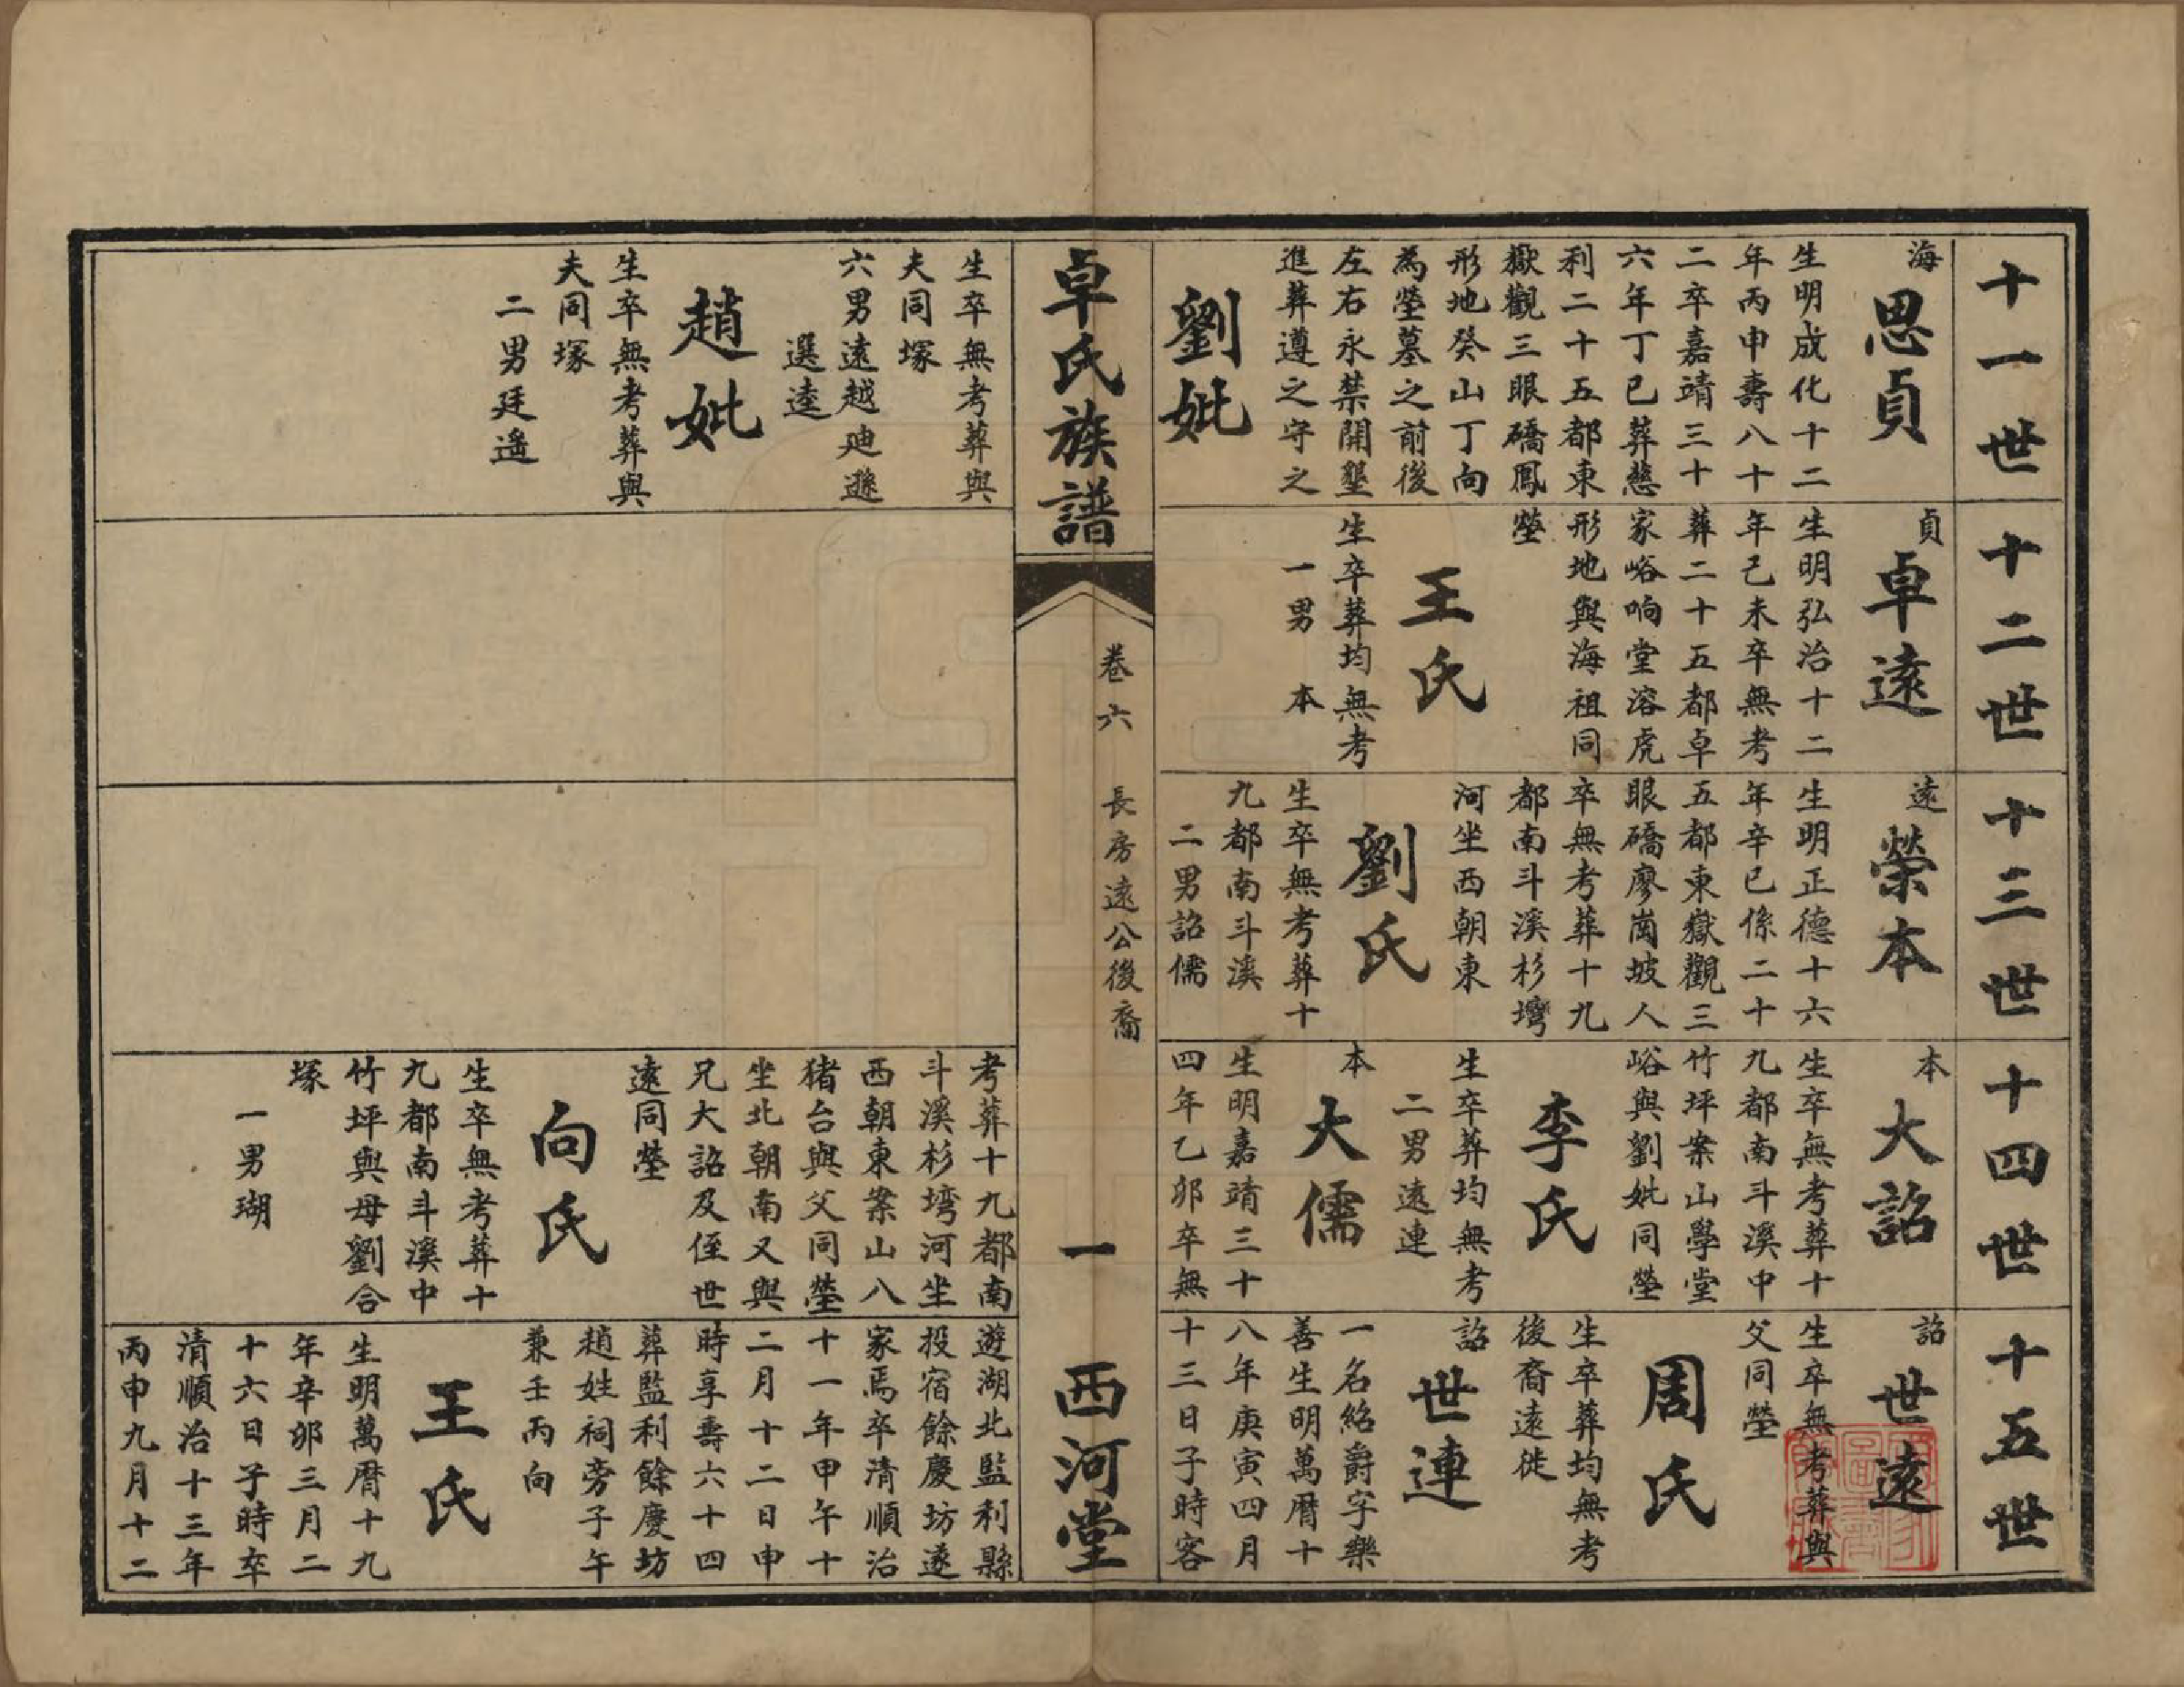 十一世
海
思貞
生明成化十二
年丙申壽八十
二卒嘉靖三十
六年丁巳葬慈
利二十五都東
嶽觀三眼礄鳳
形地癸山丁向
為塋墓之前後
左右永禁開墾
進葬遵之守之
劉妣
生卒無考葬與
夫同塚
六男遠越廸遜
選逵
趙妣
生卒無考葬與
夫同塚
二男廷遙
十二世
貞
卓遠
生明弘治十二
年己未卒無考
葬二十五都卓
家峪响堂溶虎
形地與海祖同
塋
王氏
生卒葬均無考
一男 本
十三世
遠
榮本
生明正德十六
年辛巳係二十
五都東嶽觀三
眼礄廖崗坡人
卒無考葬十九
都南斗溪杉灣
河坐西朝東
劉氏
生卒無考葬十
九都南斗溪
二男詔儒
十四世
本
大詔
生卒無考葬十
九都南斗溪中
竹坪案山學堂
峪與劉妣同塋
李氏
生卒葬均無考
二男遠連
本
大儒
生明嘉靖三十
四年乙卯卒無
考葬十九都南
斗溪杉塆河坐
西朝東案山八
猪台與父同塋
坐北朝南又與
兄大詔及侄世
遠同塋
向氏
生卒無考葬十
九都南斗溪中
竹坪與母劉合
塚
一男瑚
十五世
詔
世遠
生卒無考葬與
父同塋
周氏
生卒葬均無考
後裔遠徙
詔
世連
一名紹爵字樂
善生明萬曆十
八年庚寅四月
十三日子時客
遊湖北監利縣
投宿餘慶坊遂
家焉卒清順治
十一年甲午十
二月十二日申
時享壽六十四
葬監利餘慶坊
趙姓祠旁子午
兼壬丙向
王氏
生明萬曆十九
年辛卯三月二
十六日子時卒
清順治十三年
丙申九月十二
卓氏族譜
卷六 長房遠公後裔
一
西河堂